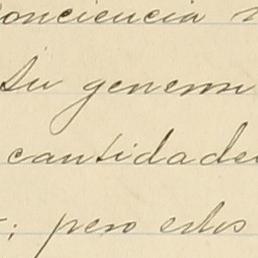 conciencia
su genero
cantidades
; pero estos